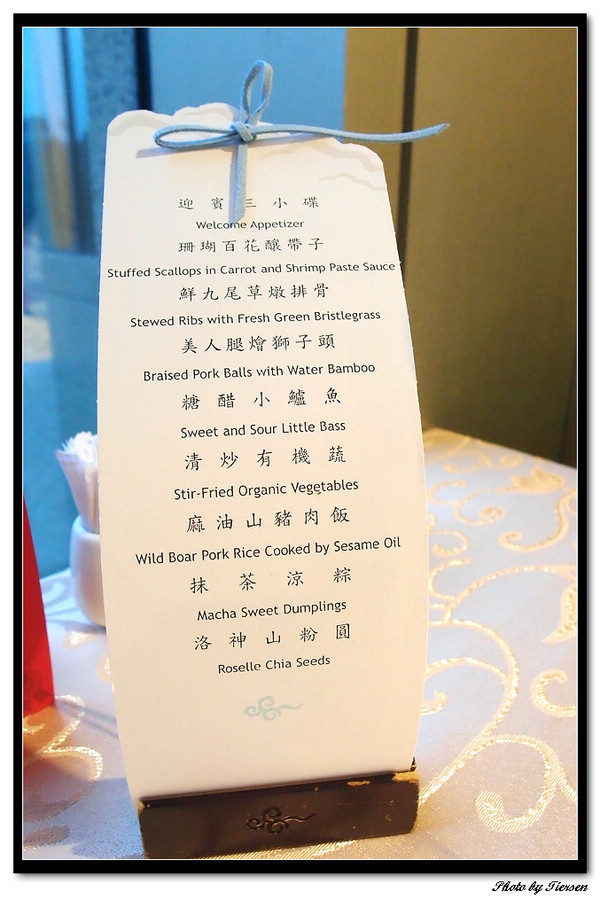 迎賓三小碟
Welcome Appetizer
珊瑚百花釀帶子
Stuffed Scallops in Carrot and Shrimp Paste Sauce
鮮九尾草燉排骨
Stewed Ribs with Fresh Green Bristlegrass
美人腿燴獅子頭
Braised Pork Balls with Water Bamboo
糖醋小鱸魚
Sweet and Sour Little Bass
清炒有機蔬
Stir-Fried Organic Vegetables
麻油山豬肉飯
Wild Boar Pork Rice Cooked by Sesame Oil
抹茶涼粽
Macha Sweet Dumplings
洛神山粉圓
Roselle Chia Seeds
Photo by Tiersen